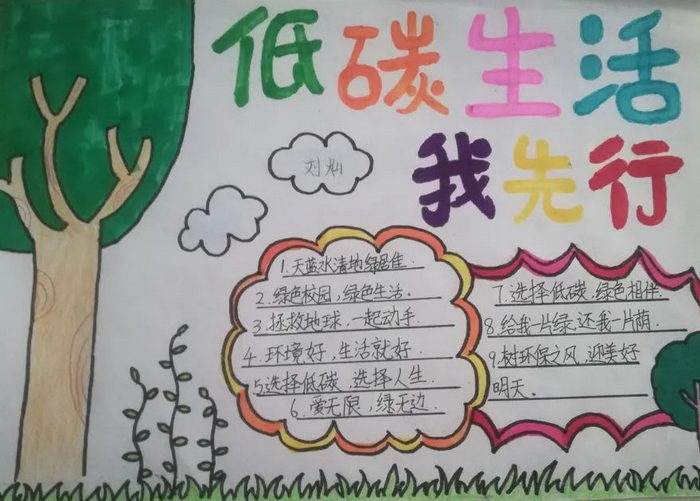 低碳生活
我先行
刘灿
1.天蓝水清地绿居佳.
2.绿色校园,绿色生活。
3.拯救地球,一起动手.
4.环境好,生活就好.
5选择低碳,选择人生.
6.爱无限,绿无边.
7.选择低碳,绿色相伴.
8.给我一片绿,还我一片荫.
9.树环保之风,迎美好
明天.